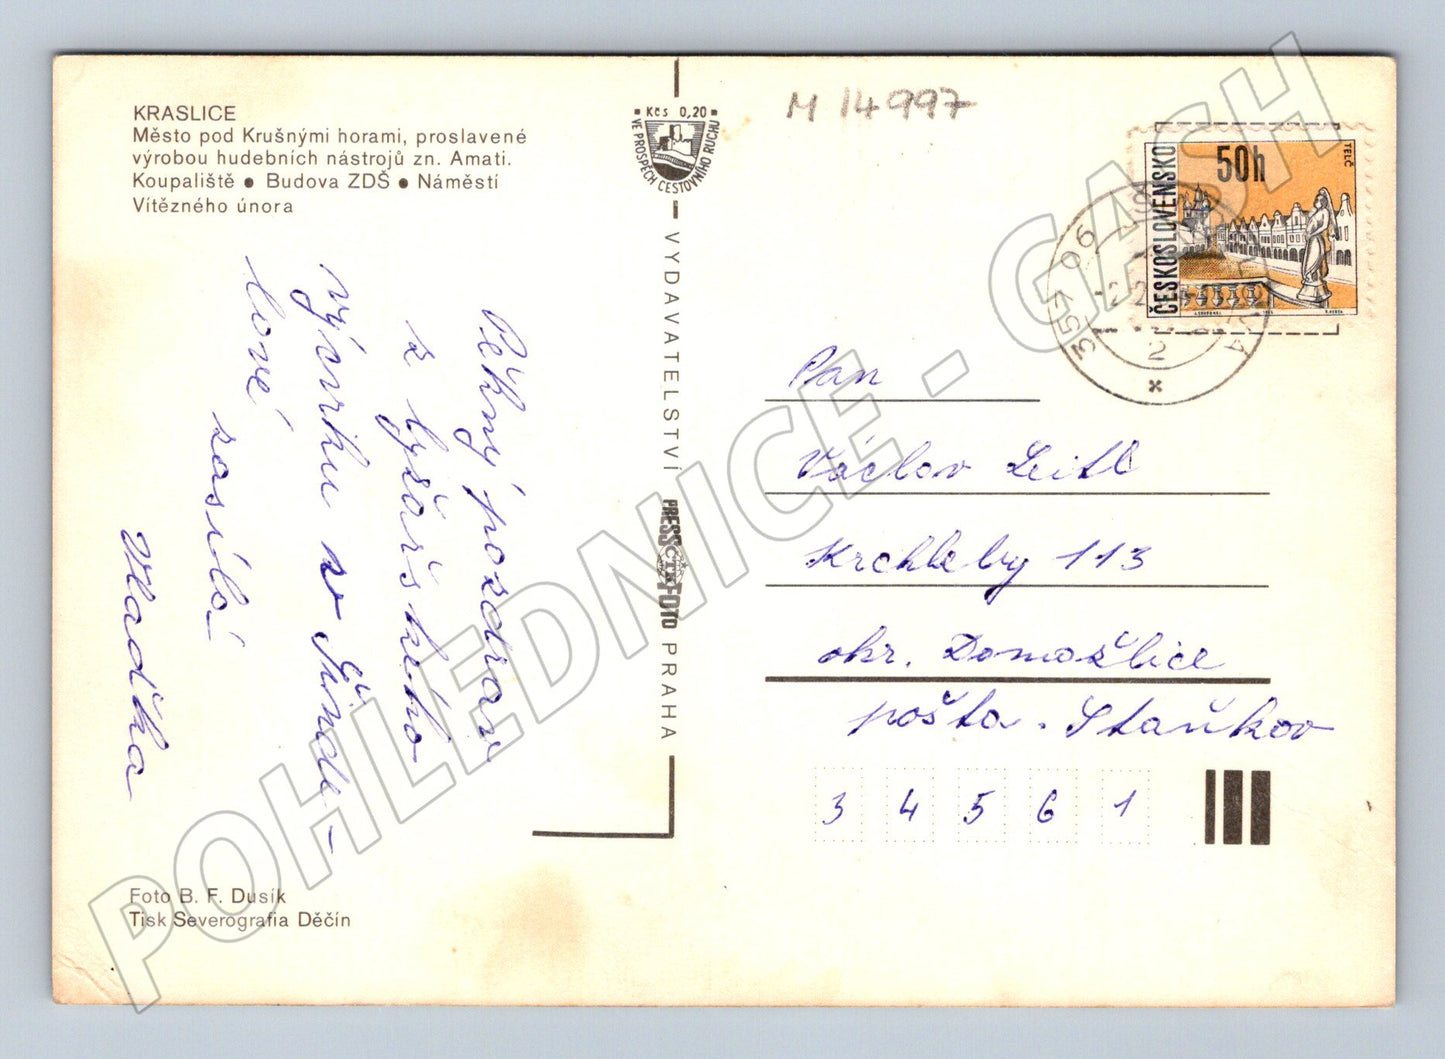 KRASLICE
Město pod Krušnými horami, proslavené
výrobou hudebních nástrojů zn. Amati.
Koupaliště ● Budova ZDŠ ● Náměstí
Vítězného února
Pěkný pozdrav
z lyžařského
výcviku v Šinde-
lové
zasílá
Vlaďka
Foto B. F. Dusík
Tisk Severografia Děčín
Kčs 0,20
VE PROSPĚCH CESTOVNÍHO RUCHU
VYDAVATELSTVÍ PRESSFOTO PRAHA
ČTK
M 14997
ČESKOSLOVENSKO
50h
TELČ
357 06
2
Pan
Václav Leitl
Krchleby 113
okr. Domažlice
pošta. Staňkov
3 4 5 6 1
POHLEDNICE - GASH